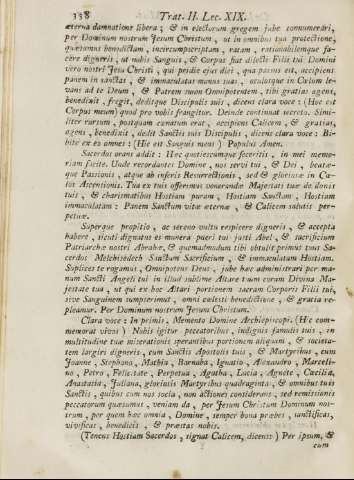 138 Trat. II. Lec. XIX.
æterna damnatione libera; & in electorum gregem jube connumerari,
per Dominum nostrum Jesum Christum, quam in omnibus tua protectione,
quæsumus benedictam, incircumscriptam, ratam, rationabilemque fa-
cere digneris, ut nobis Sanguis, & Corpus fiat dilecti Filii tui Domini
vero nostri Jesu Christi, qui pridie ejus diei, qua passus est, accipiens
panem in sanctas, & immaculatas manus suas, oculosque in Cœlum le-
vans ad te Deum, & Patrem suum Omnipotentem, tibi gratias agens,
benedixit, fregit, deditque Discipulis suis, dicens clara voce: (Hoc est
Corpus meum) quod pro vobis frangitur. Deinde continuat secreto. Simi-
liter rursum, postquam cœnatum erat, accipiens Calicem, & gratias,
agens, benedixit, dedit Sanctis suis Discipulis, dicens clara voce: Bi-
bite ex eo omnes: (Hic est Sanguis meus) Populus Amen.
Sacerdos orans addit: Hæc quotiescumque feceritis, in mei memo-
riam facite. Unde recordantes Domine, nos servi tui, & Dei, beatæ-
que Passionis, atque ab inferis Resurrectionis, sed & gloriosæ in Cœ-
los Ascentionis. Tua ex tuis offerimus venerandæ Majestati tuæ de donis
tuis, & charismatibus Hostiam puram, Hostiam Sanctam, Hostiam
immaculatam: Panem Sanctum vitæ æternæ, & Calicem salutis per-
petuæ.
Superque propitio, ac sereno vultu respicere digneris, & accepta
habere, sicuti dignatus es munera pueri tui justi Abel, & sacrificium
Patriarchæ nostri Abrahæ, & quemadmodum tibi obtulit primus tuus Sa-
cerdos Melchisedech Sanctum Sacrificium, & immaculatam Hostiam.
Suplices te rogamus, Omnipotens Deus, jube hæc administrari per ma-
num Sancti Angeli tui in illud sublime Altare tuum coram Divina Ma-
jestate tua, ut qui ex hoc Altari portionem sacram Corporis Filii tui,
sive Sanguinem sumpserimus, omni cœlesti benedictione, & gratia re-
pleamur. Per Dominum nostrum Jesum Christum.
Clara voce: Inprimis, Memento Domine Archiepiscopi (Hic com-
memorat vivos) Nobis igitur peccatoribus, indignis famulis tuis, in
multitudine tuæ miserationis sperantibus portionem aliquam, & societa-
tem largiri digneris, cum Sanctis Apostolis tuis, & Martyribus, cum
Joanne, Stephano, Mathia, Barnaba, Ignatio, Alexandro, Marceli-
no, Petro, Felicitate, Perpetua, Agatha, Lucia, Agnete, Cæcilia,
Anastatia, Juliana, gloriosis Martyribus quadraginta, & omnibus tuis
Sanctis, quibus cum nos socia, non actiones considerans, sed remissionis
peccatorum quæsumus, veniam da, per Jesum Christum Dominum nos-
trum, per quem hæc omnia, Domine, semper bona præbes, sanctificas,
vivificas, benedicis, & præstas nobis.
(Tenens Hostiam Sacerdos, signat Calicem, dicens:) Per ipsum, &
cum